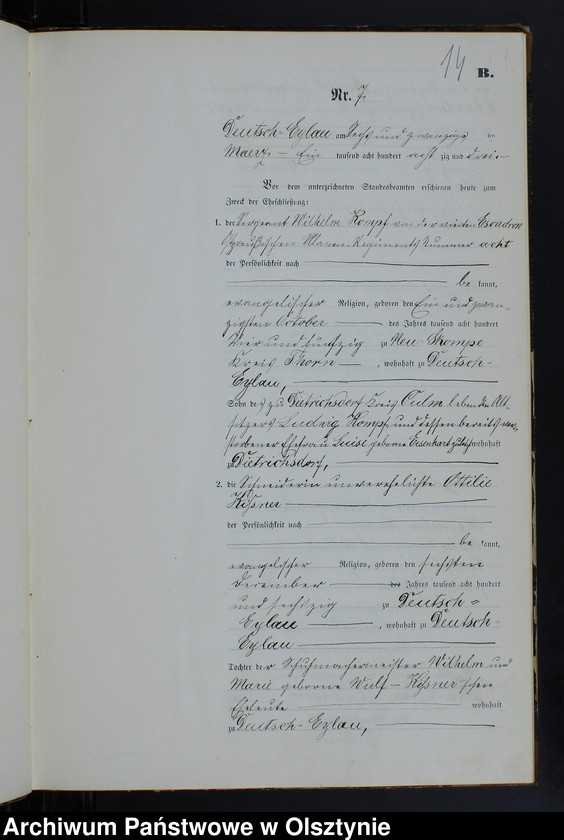 14
B.
Nr. 7.
Deutsch-Eylau am Sechs und zwanzigs ten
Maerz — Ein tausend acht hundert acht zig und drei
Vor dem unterzeichneten Standesbeamten erschienen heute zum
Zweck der Eheschließung:
1. der Sergeant Wilhelm Kompf von der vierten Escadron
Ostpreußischen Ulanen Regiments Nummer acht
der Persönlichkeit nach
be kannt,
evangelischer Religion, geboren den Ein und zwan-
zigsten October des Jahres tausend acht hundert
vier und fünfzig zu Neu-Skompe
Kreis Thorn, wohnhaft zu Deutsch-
Eylau,
Sohn des zu Dietrichsdorf Kreis Culm lebenden Alt-
sitzers Ludwig Kompf und dessen bereits ver-
storbener Ehefrau Luise geborne Eisenhart zuletzt wohnhaft
zu Dietrichsdorf,
2. die Schneiderin unverehelichte Ottilie
Kißner
der Persönlichkeit nach
be kannt,
evangelischer Religion, geboren den sechsten
December des Jahres tausend acht hundert
und sechszig zu Deutsch-
Eylau, wohnhaft zu Deutsch-
Eylau
Tochter der Schuhmachermeister Wilhelm und
Marie geborne Wulf - Kißner'schen
Eheleute wohnhaft
zu Deutsch-Eylau,
Archiwum Państwowe w Olsztynie